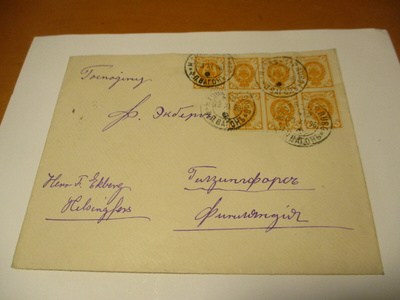 Господину
Ф. Экбергъ
Herr F. Ekberg
Helsingfors
Гельсингфорсъ
Финляндія